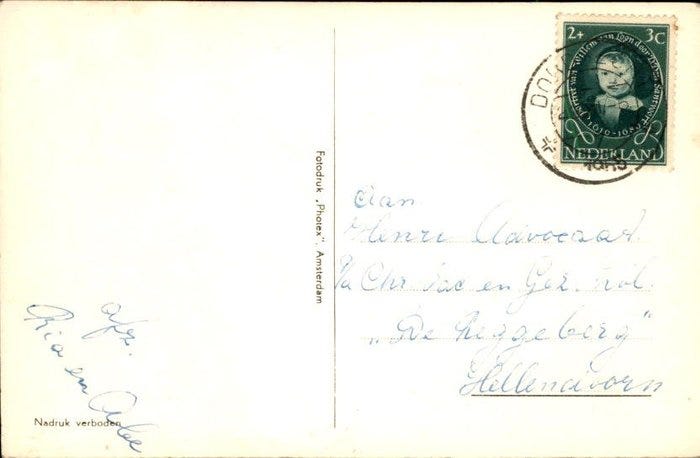 2+ 3C
Portret van Willem van Loon door D.Dz. Santvoort
1636
NEDERLAND
Fotodruk „Photex”, Amsterdam
Aan
Henri Advocaat
Chr Vac en Gez. kol.
„De Reggeberg”
Hellendoorn
afz.
Ria en
Nadruk verboden